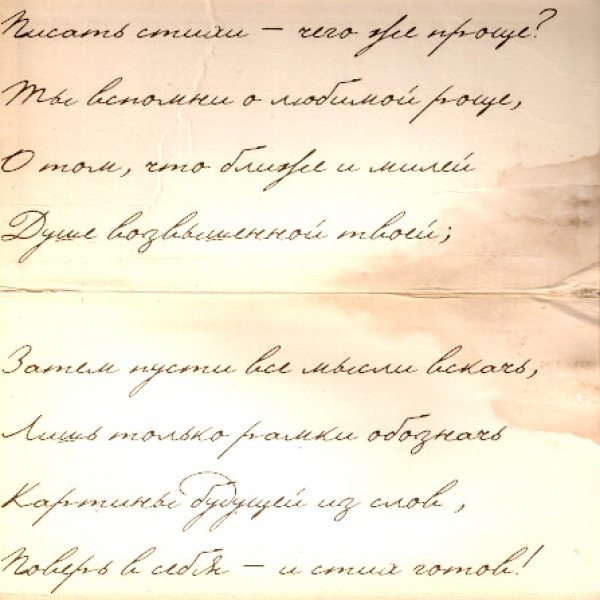 Писать стихи – чего же проще?
Ты вспомни о любимой роще,
О том, что ближе и милей
Душе возвышенной твоей;
Затем пусти все мысли вскачь,
Лишь только рамки обозначь
Картины будущей из слов,
Поверь в себя – и стих готов!